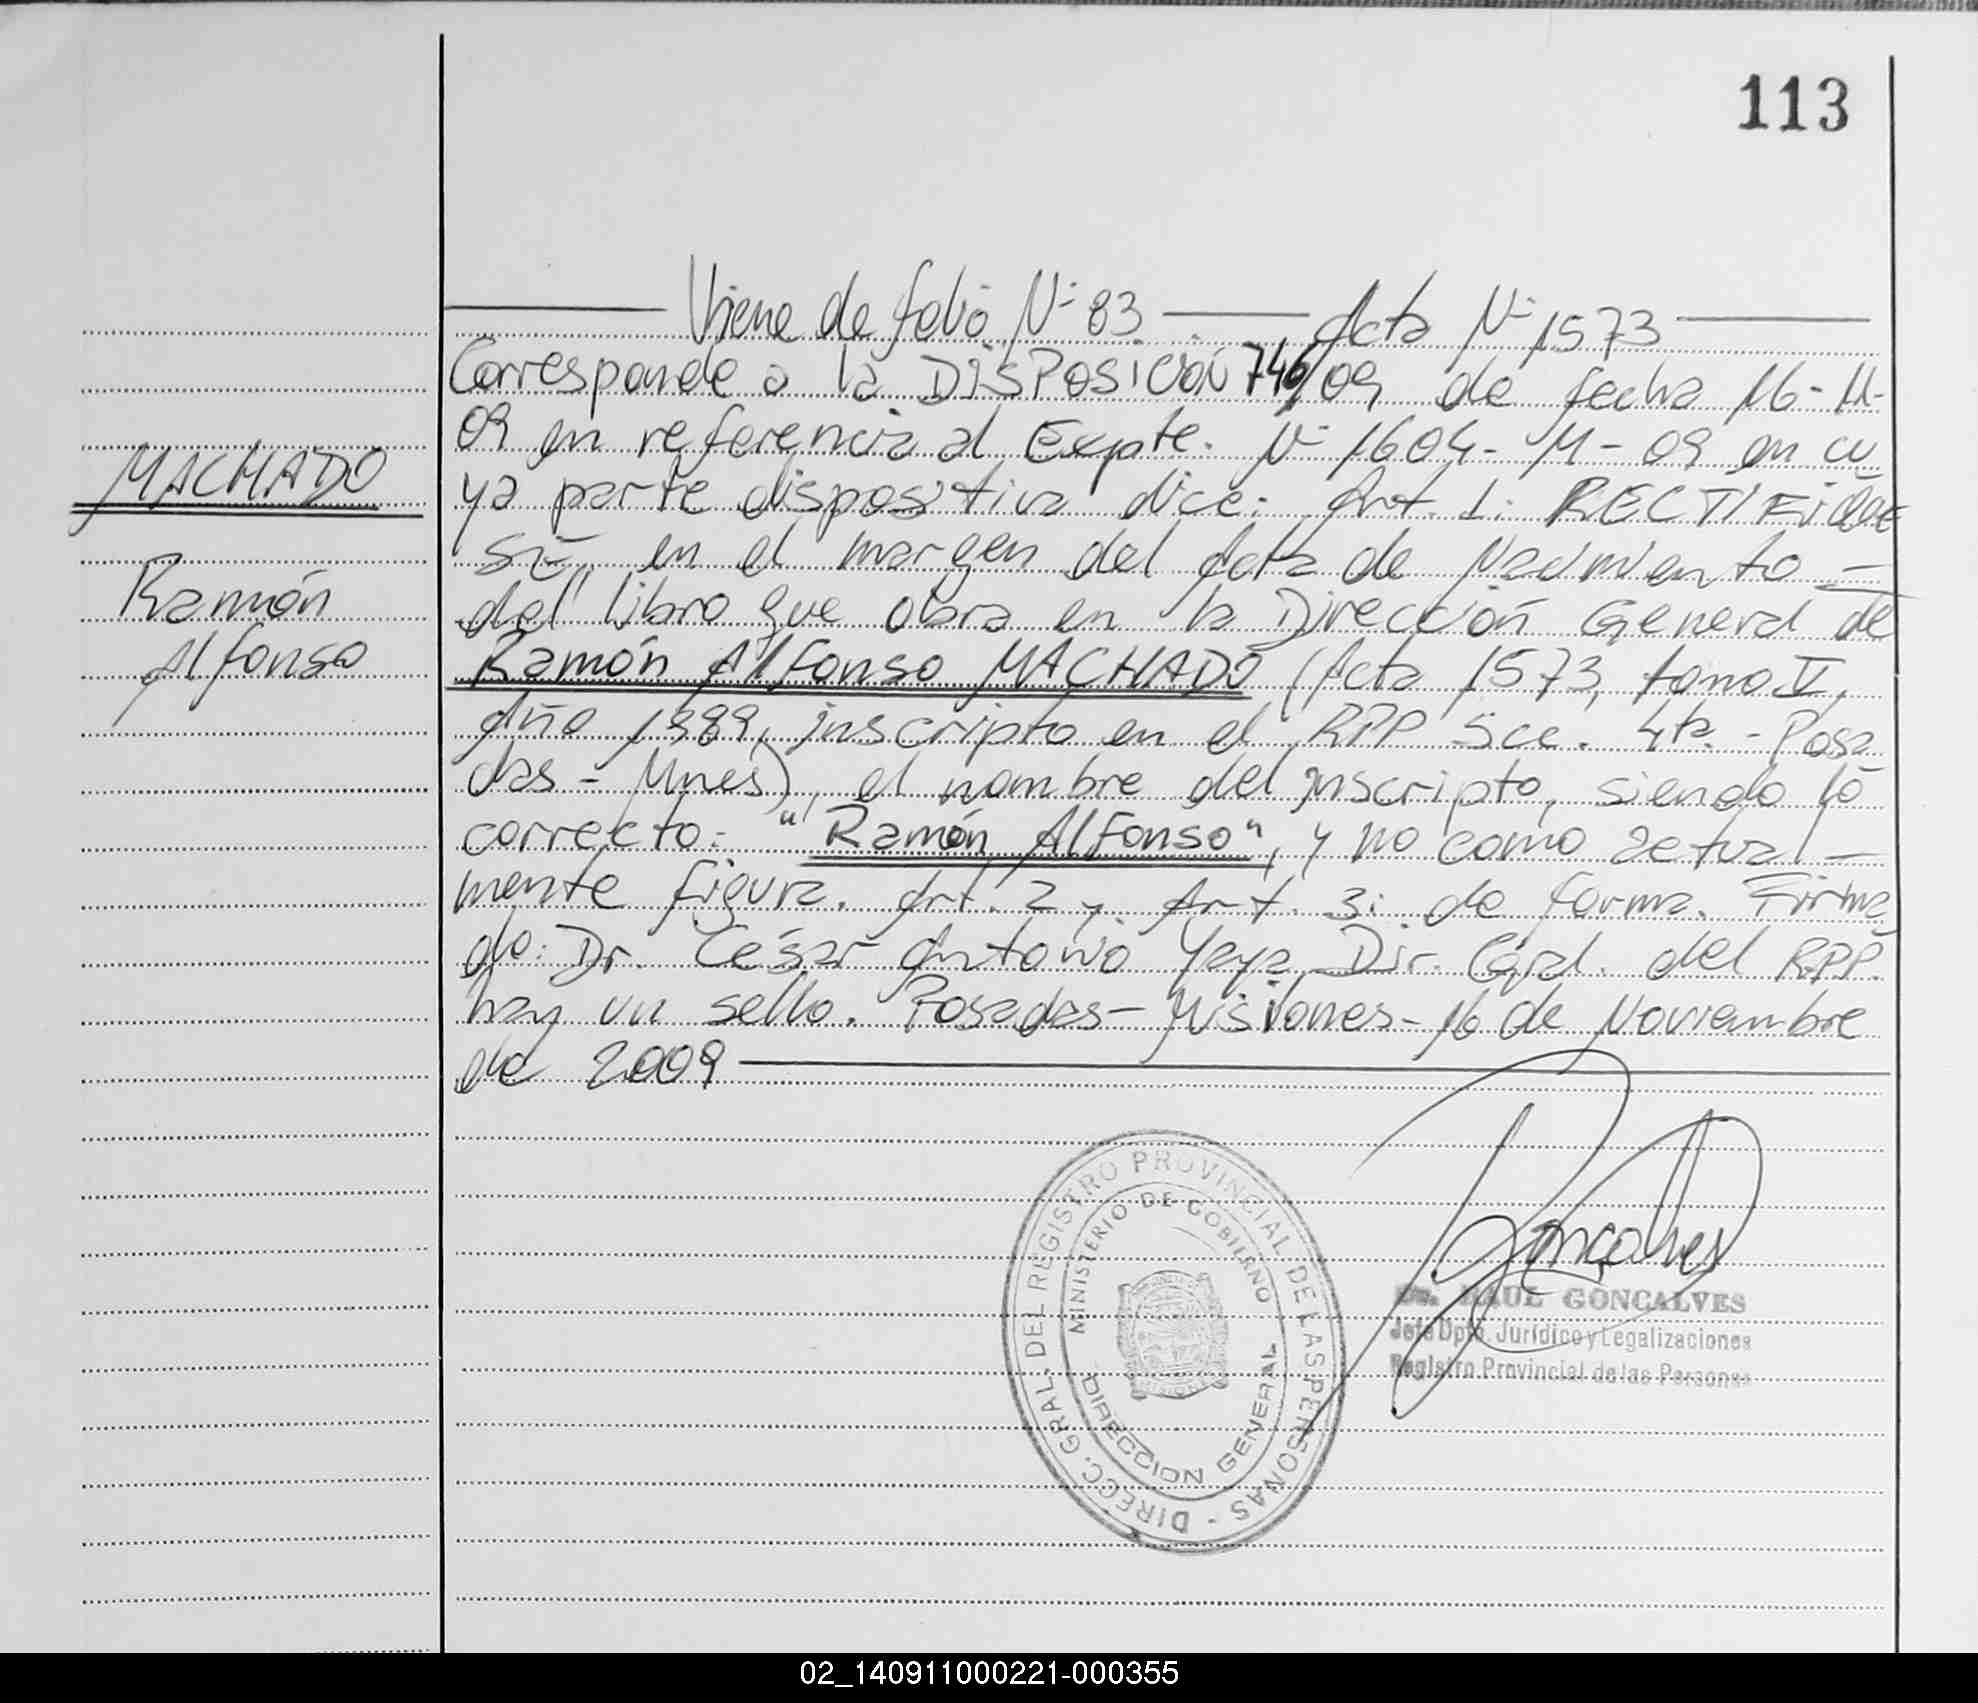 113
Viene de folio N° 83 — Acta N° 1573
Corresponde a la DISPOSICIÓN 746/09 de fecha 16-11-
09 en referencia al Expte. N° 1604- M-09 en cu
MACHADO
ya parte dispositiva dice: Art. 1: RECTIFIQUE
SE en el margen del Acta de Nacimiento —
Ramón
del libro que obra en la Dirección General de
Alfonso
Ramón Alfonso MACHADO (Acta 1573, tomo V,
Año 1989, inscripto en el RPP Scc. 4ta. - Posa
das - Mnes), el nombre del inscripto, siendo lo
correcto: "Ramón Alfonso", y no como actual —
mente figura. Art. 2 y Art. 3: de forma. Firma
do: Dr. César Antonio Yaya Dir. Gral. del RPP.
hay un sello. Posadas - Misiones - 16 de Noviembre
de 2009
DIRECC. GRAL. DEL REGISTRO PROVINCIAL DE LAS PERSONAS -
MINISTERIO DE GOBIERNO
DIRECCION GENERAL
MISIONES
Gonçalves
Dr. RAUL GONCALVES
Jefe Dpto. Jurídico y Legalizaciones
Registro Provincial de las Personas
02_140911000221-000355